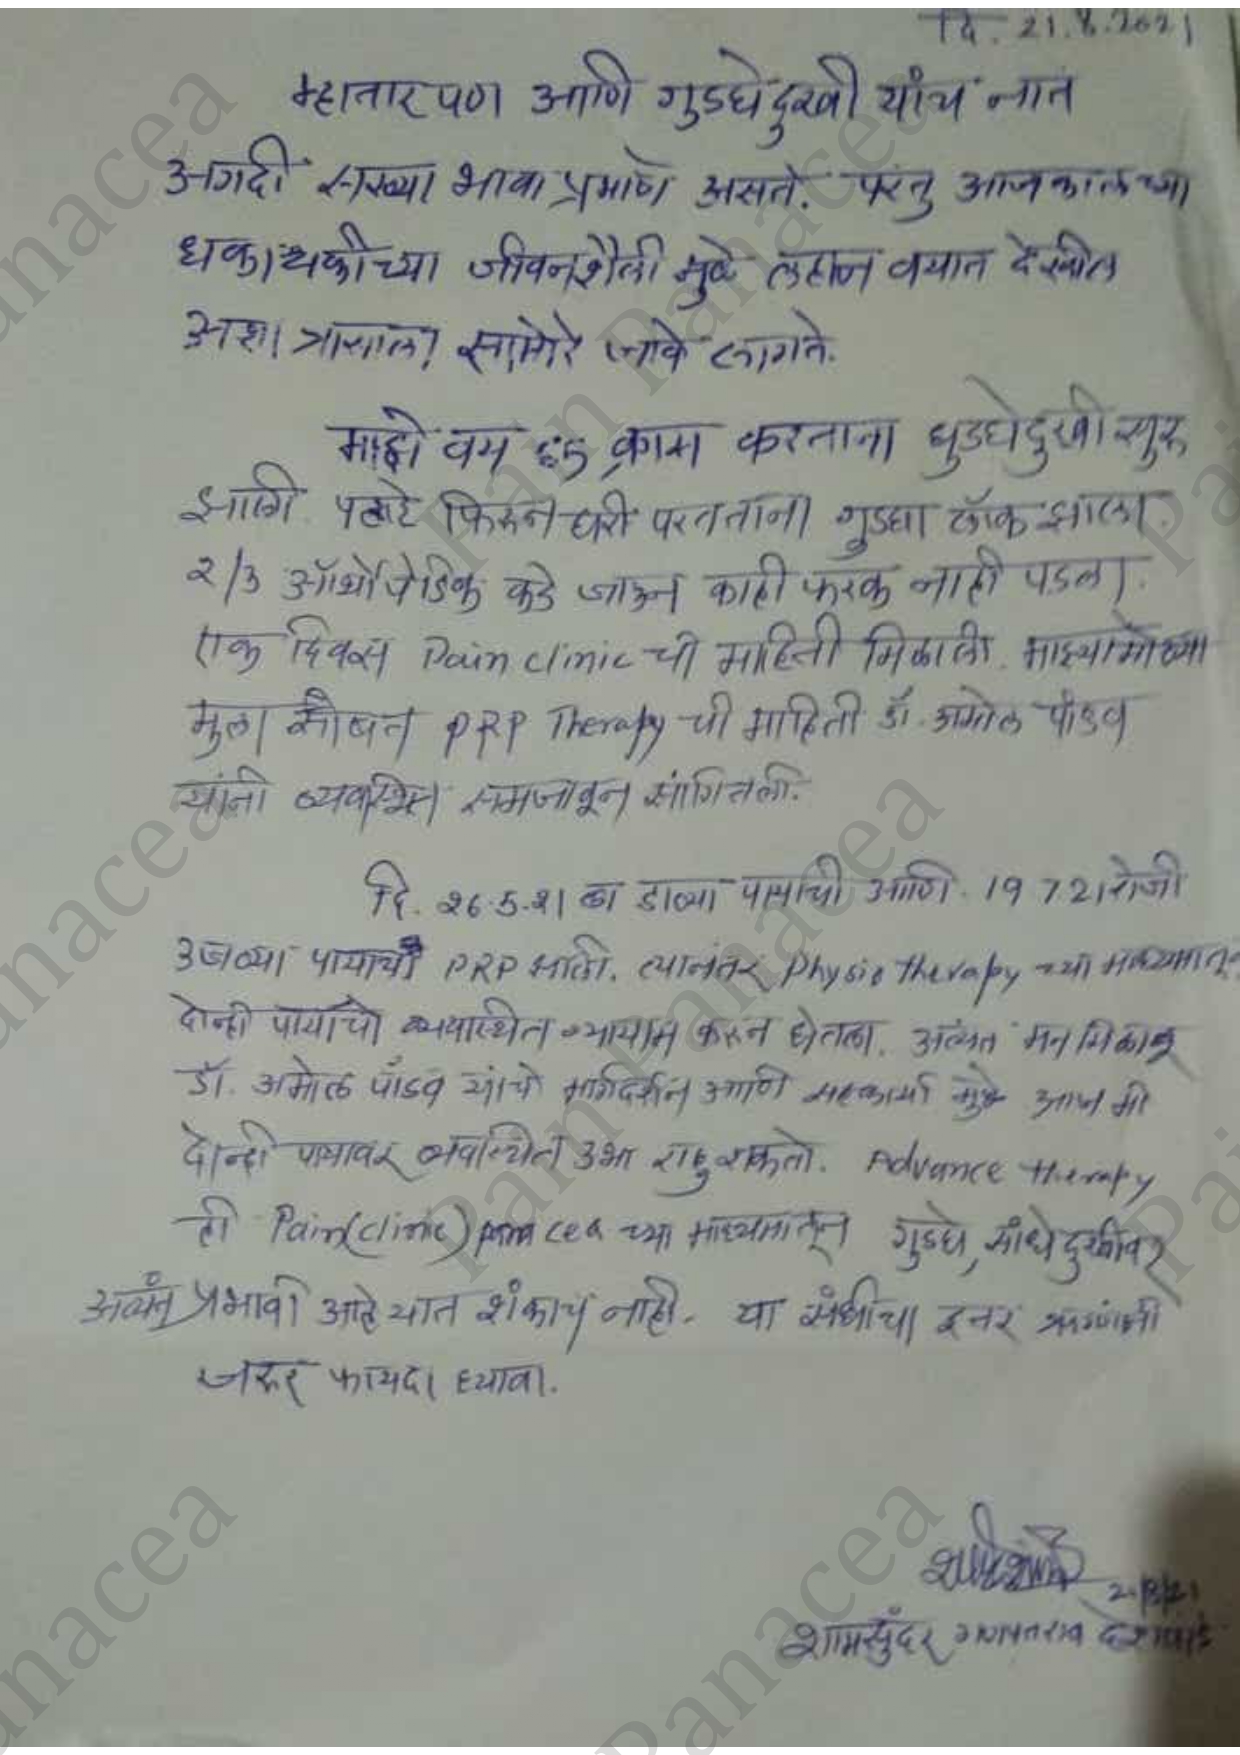 दि. 21.8.2021
म्हातारपण आणि गुडघेदुखी यांचं नातं
अगदी सख्ख्या भावा प्रमाणे असते. परंतु आजकालच्या
धकाधकीच्या जीवनशैली मुळे लहान वयात देखील
अशा त्रासाला सामोरे जावे लागते.
माझे वय ६5, काम करताना घुडघेदुखी सुरु
झाली. पहाटे फिरुन घरी परतताना गुडघा लॉक झाला.
२/3 ऑर्थोपेडिक कडे जाऊन काही फरक नाही पडला.
एक दिवस Pain clinic ची माहिती मिळाली. माझ्या मोठ्या
मुला सोबत PRP Therapy ची माहिती डॉ. अमोल पांडव
यांनी व्यवस्थित समजावून सांगितली.
दि. २6.5.२1 ला डाव्या पायाची आणि 19 7.21 रोजी
उजव्या पायाची PRP झाली. त्यानंतर Physio therapy च्या माध्यमातून
दोन्ही पायांचा व्यवस्थित व्यायाम करुन घेतला. अत्यंत मन मिळाऊ
डॉ. अमोल पांडव यांचे मार्गदर्शन आणि सहकार्या मुळे आज मी
दोन्ही पायावर व्यवस्थित उभा राहु शकतो. Advance therapy
ही Pain (clinic) panacea च्या माध्यमातून गुडघे, सांधे दुखीवर
अत्यंत प्रभावी आहे यात शंकाच नाही. या संधीचा इतर रुग्णांनी
जरूर फायदा घ्यावा.
शामसुंदर गणपतराव देशपांडे
Pain Panacea